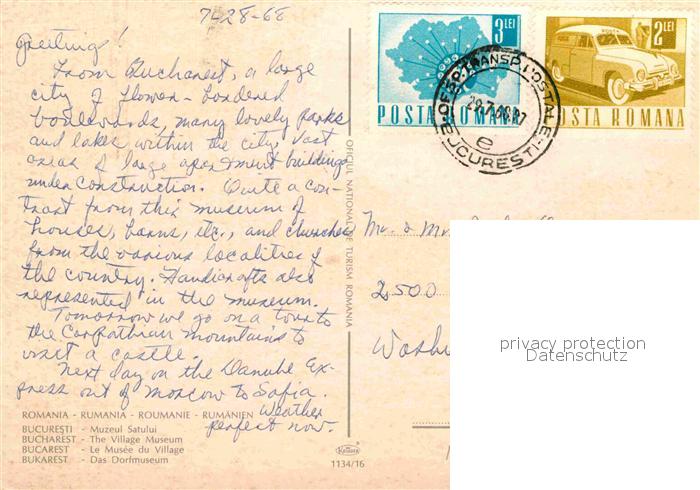 7-28-68
Greetings!
From Bucharest, a large
city of flower-bordered
boulevards, many lovely parks
and lakes within the city. Vast
areas of large apartment buildings
under construction. Quite a con-
trast from this museum of
houses, barns, etc., and churches
from the various localities of
the country. Handicrafts also
represented in the museum.
Tomorrow we go on a tour to
the Carpathian mountains to
visit a castle.
Next day on the Danube Ex-
press out of Moscow to Sofia.
Weather
perfect now.
ROMANIA - RUMANIA - ROUMANIE - RUMÄNIEN
BUCUREŞTI - Muzeul Satului
BUCHAREST - The Village Museum
BUCAREST - Le Musée du Village
BUKAREST - Das Dorfmuseum
OFICIUL NATIONAL DE TURISM ROMANIA
1134/16
3 LEI
POSTA ROMANA
2 LEI
POSTA ROMANA
TRANSP. POSTALE
BUCUREŞTI
e
Mr. & Mr
2500
Washi
privacy protection
Datenschutz